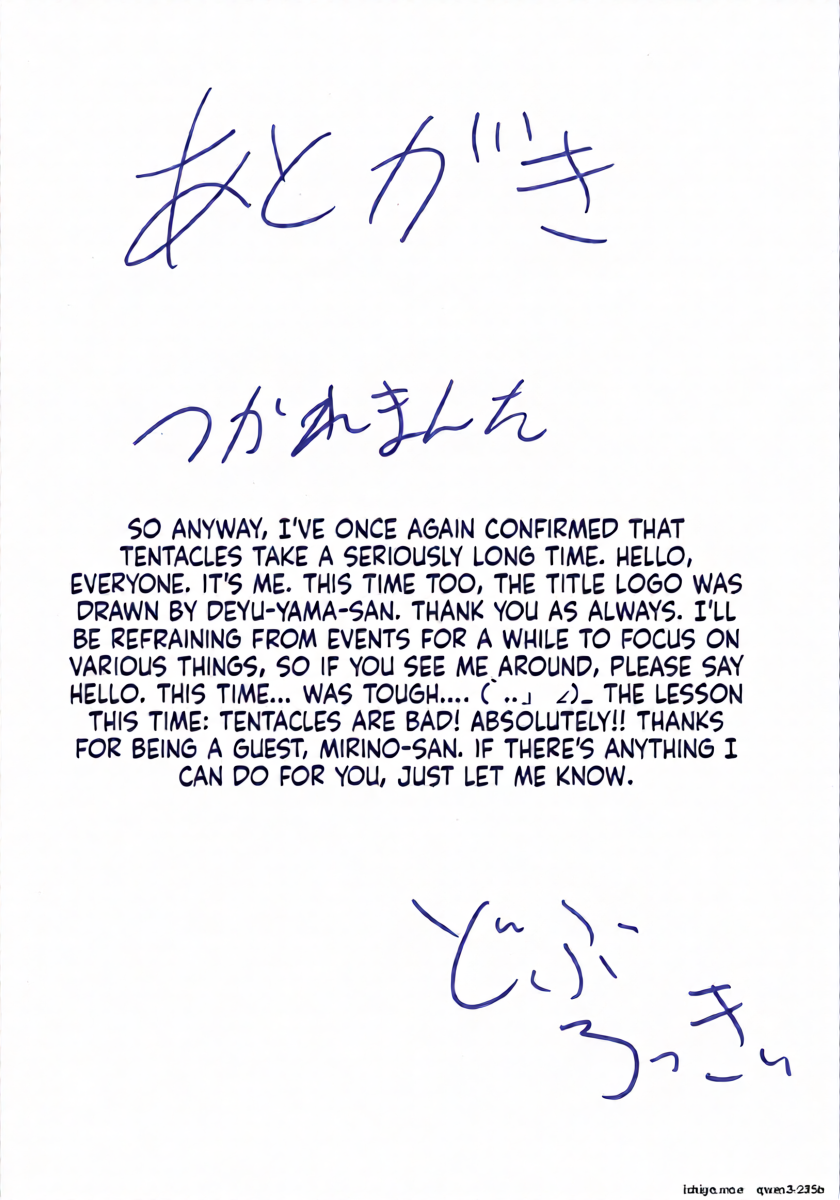 あとがき
つかれまんた
SO ANYWAY, I'VE ONCE AGAIN CONFIRMED THAT
TENTACLES TAKE A SERIOUSLY LONG TIME. HELLO,
EVERYONE. IT'S ME. THIS TIME TOO, THE TITLE LOGO WAS
DRAWN BY DEYU-YAMA-SAN. THANK YOU AS ALWAYS. I'LL
BE REFRAINING FROM EVENTS FOR A WHILE TO FOCUS ON
VARIOUS THINGS, SO IF YOU SEE ME AROUND, PLEASE SAY
HELLO. THIS TIME... WAS TOUGH.... (`..」 ∠)_ THE LESSON
THIS TIME: TENTACLES ARE BAD! ABSOLUTELY!! THANKS
FOR BEING A GUEST, MIRINO-SAN. IF THERE'S ANYTHING I
CAN DO FOR YOU, JUST LET ME KNOW.
どぶ
ろっきぃ
ichigo.moe qwen3-235b